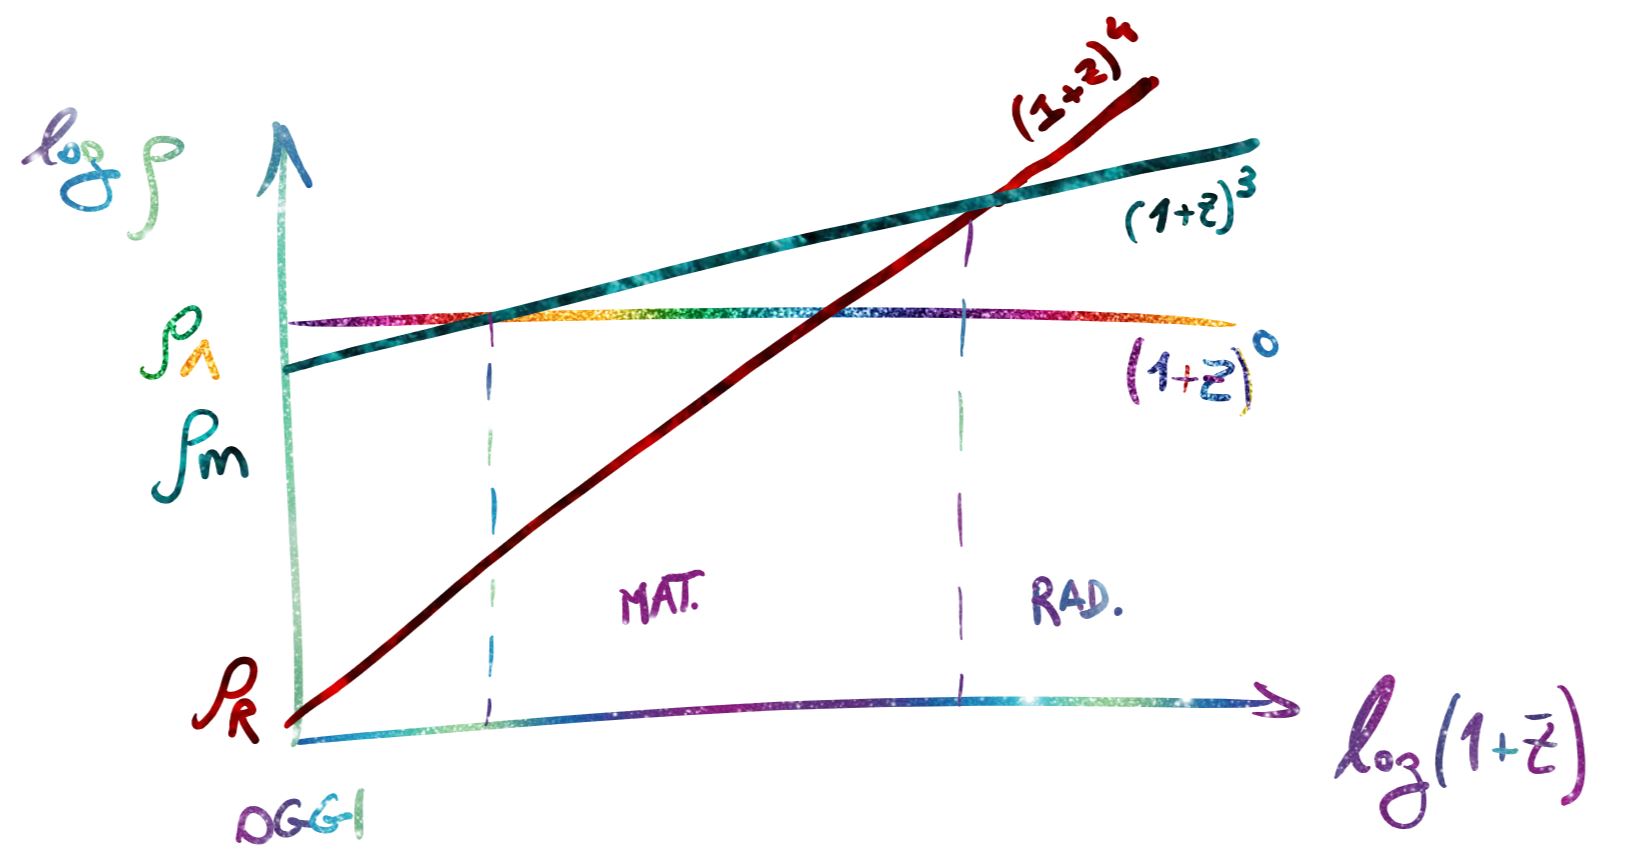 log ρ
(1+z)⁴
(1+z)³
ρΛ
(1+z)⁰
ρm
MAT.
RAD.
ρR
log(1+z)
OGGI